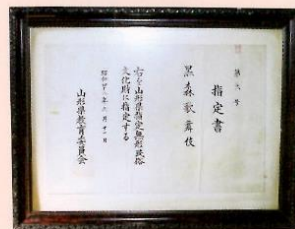 第六号
指定書
黒森歌舞伎
右を山形県指定無形民俗
文化財に指定する
山形県教育委員会